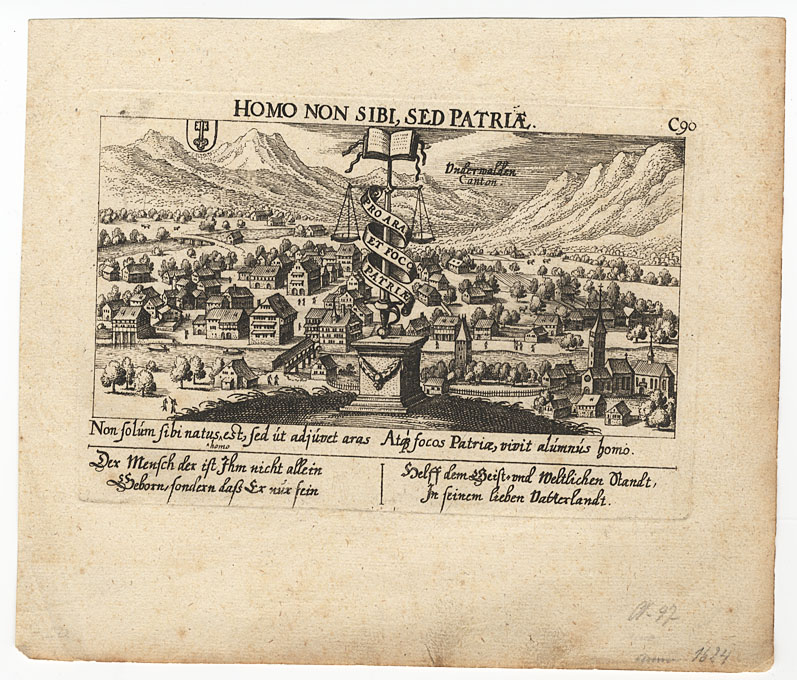 HOMO NON SIBI, SED PATRIÆ.
C90
Vnderwalden
Canton.
PRO ARA
ET FOCO
PATRIÆ
Non solùm sibi natus est, sed ùt adjùvet aras Atqꝫ focos Patriæ, vivit alùmnùs homo.
homo
Der Mensch der ist Ihm nicht allein
Geborn, sondern daß Er nùr sein
Helff dem Geist- vnd Weltlichen Standt,
In seinem lieben Vatterlandt.
1624